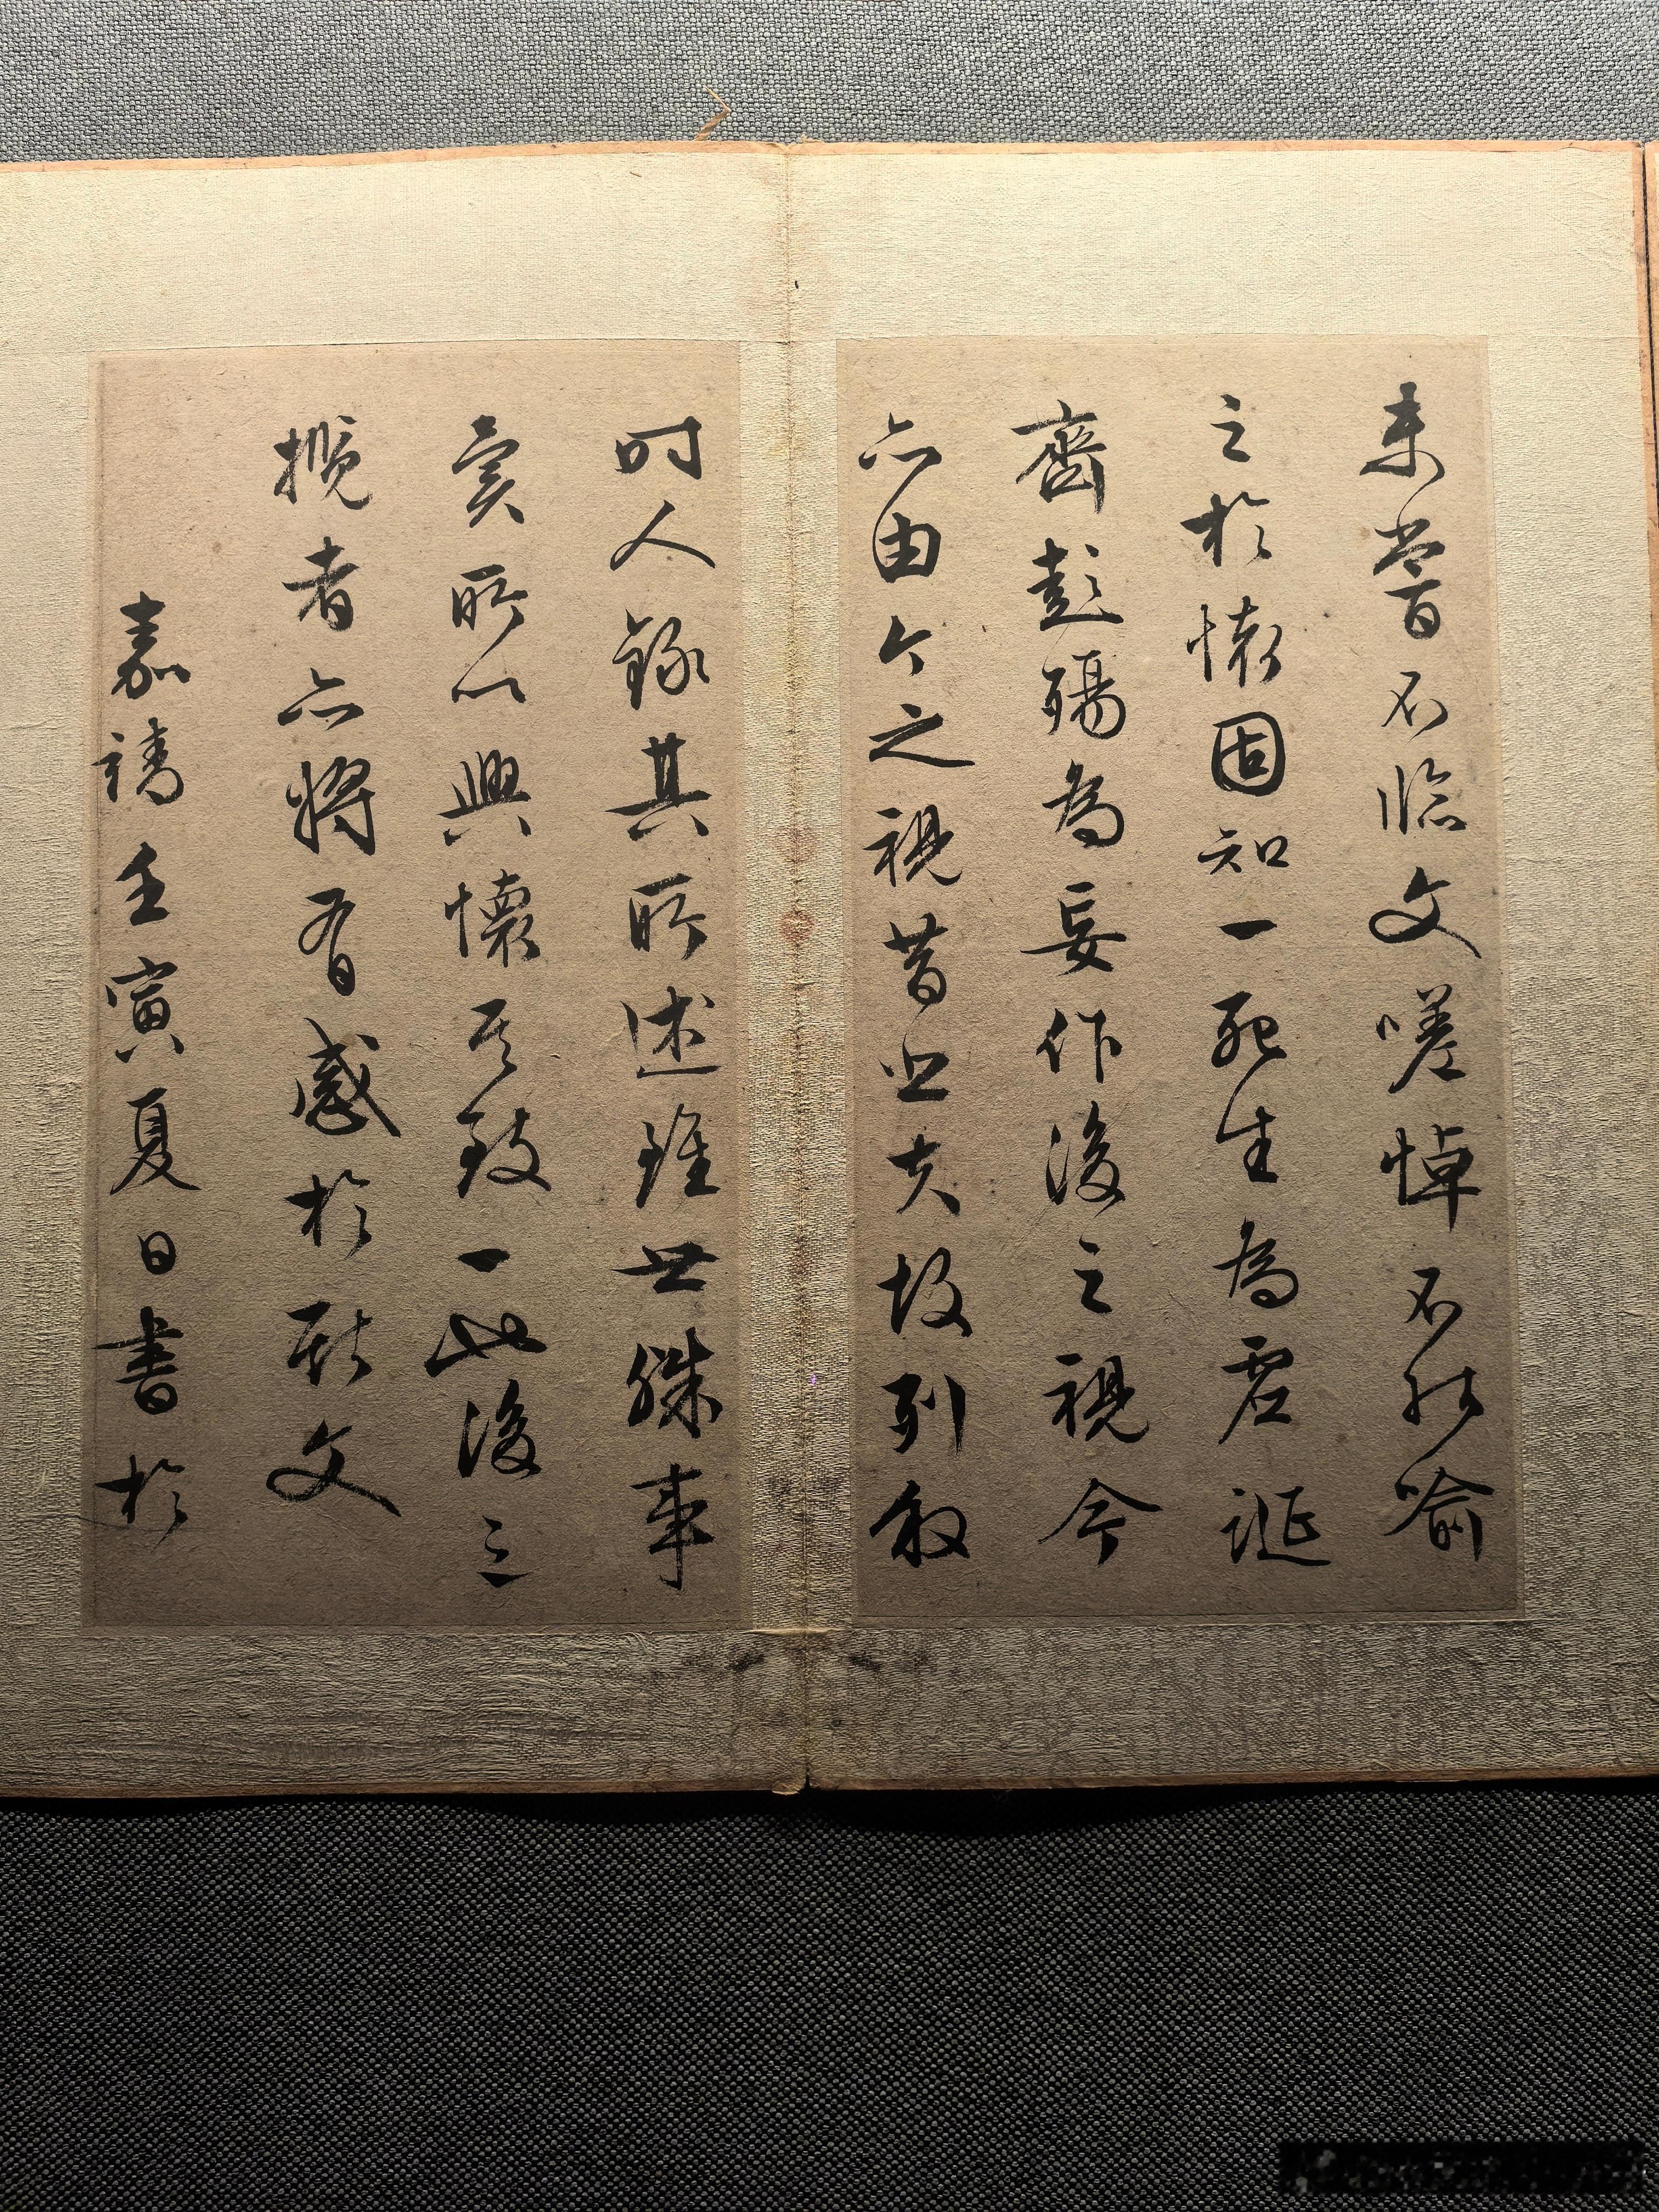 未嘗不臨文嗟悼不能喻
之於懷固知一死生為虛誕
齊彭殤為妄作後之視今
亦由今之視昔悲夫故列叙
時人錄其所述雖世殊事
異所以興懷其致一也後之
攬者亦將有感於斯文
嘉靖壬寅夏日書於